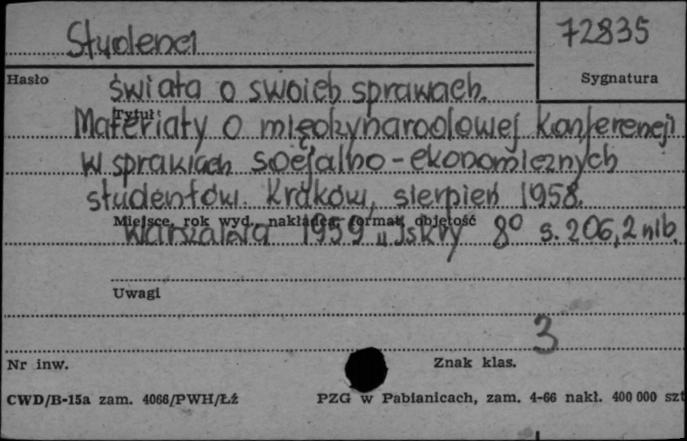 Studenci
72835
Hasło
Sygnatura
świata o swoich sprawach.
Tytuł
Materiały o międzynarodowej konferencji
w sprawach socjalno-ekonomicznych
studentów. Kraków, sierpień 1958.
Miejsce, rok wyd., nakładca, format, objętość
Warszawa 1959 "Iskry 8° s. 206, 2 nlb.
Uwagi
3
Nr inw.
Znak klas.
CWD/B-15a zam. 4066/PWH/Łź
PZG w Pabianicach, zam. 4-66 nakł. 400 000 szt